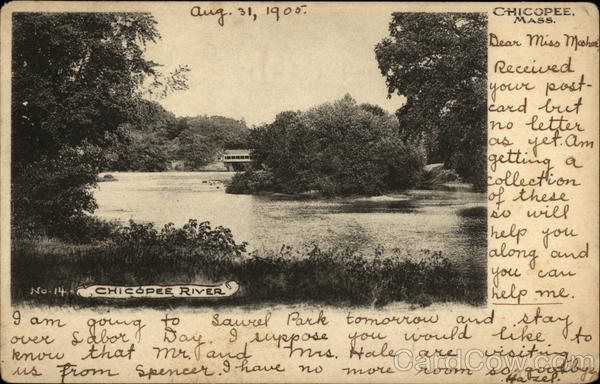 Aug. 31, 1905.
CHICOPEE,
MASS.
Dear Miss
Received
your post-
card but
no letter
as yet. Am
getting a
collection
of these
so will
help you
along and
you can
help me.
No. 14
CHICOPEE RIVER
I am going to Laurel Park tomorrow and stay
over Labor Day. I suppose you would like to
know that Mr. and Mrs. Hale are visiting
us from Spencer. I have no more room so goodbye
CardCow.com